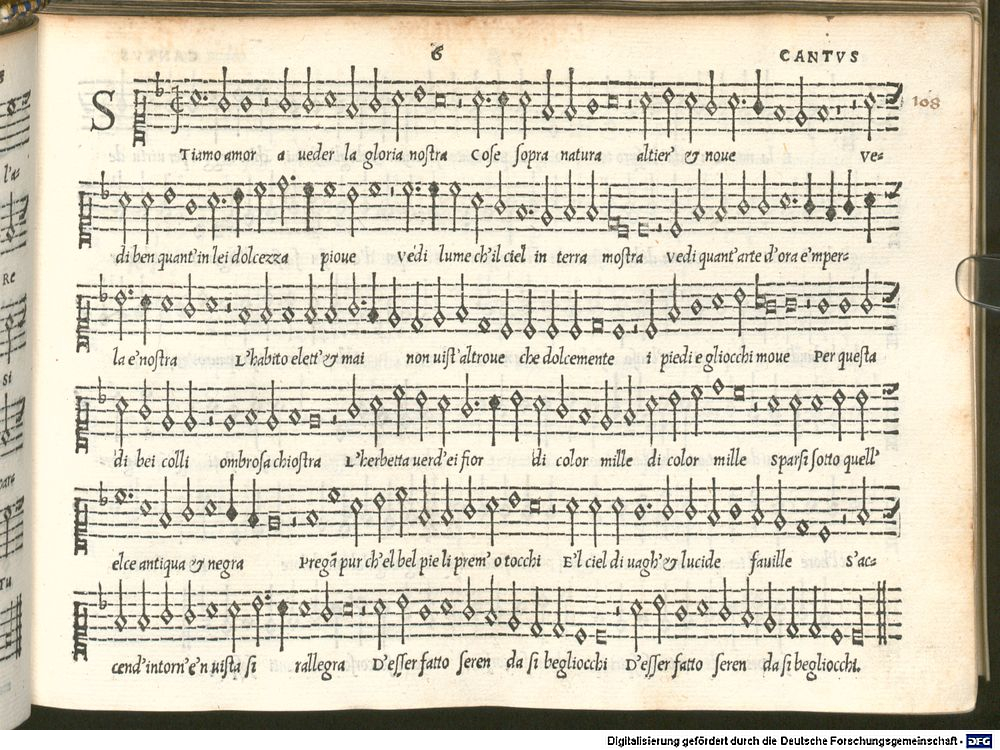 6
CANTVS
108
STiamo amor a ueder la gloria nostra Cose sopra natura altier' & noue Ve-
di ben quant' in lei dolcezza pioue vedi lume ch'il ciel in terra mostra vedi quant' arte d'ora e'mper-
la e'nostra L'habito elett' & mai non uist' altroue che dolcemente i piedi e gliocchi moue Per questa
di bei colli ombrosa chiostra L'herbetta uerd' ei fior di color mille di color mille Sparsi sotto quell'
elce antiqua & negra Pregã pur ch'el bel pie li prem' o tocchi E'l ciel di uagh' & lucide fauille S'ac-
cend' intorn' e'n uista si rallegra D'esser fatto seren da si begliocchi D'esser fatto seren da si begliocchi.
l'a-
RE
si
Digitalisierung gefördert durch die Deutsche Forschungsgemeinschaft - DFG